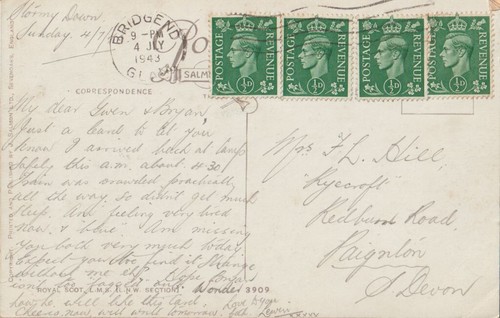 Stormy Down
Sunday. 4/7
BRIDGEND
9 - PM
4 JLY
1943
GLAM
POSTAGE REVENUE ½D
POSTAGE REVENUE ½D
POSTAGE REVENUE ½D
POSTAGE REVENUE ½D
SALM
CORRESPONDENCE
My dear Gwen & Bryan,
Just a card to let you
know I arrived back at camp
safely this a.m. about 4.30
Train was crowded practically
all the way, so didn't get much
sleep. Am feeling very tired
now, & blue. Am missing
you both very much today.
Expect you too find it strange
without me eh? Hope
Wonder
how he will like this card.
Cheerio now, will write tomorrow.
Mrs F. L. Hill,
Ryecroft
Redburn Road,
Paignton
S. Devon
ROYAL SCOT, L.M.S. (L.N.W. SECTION) 3909